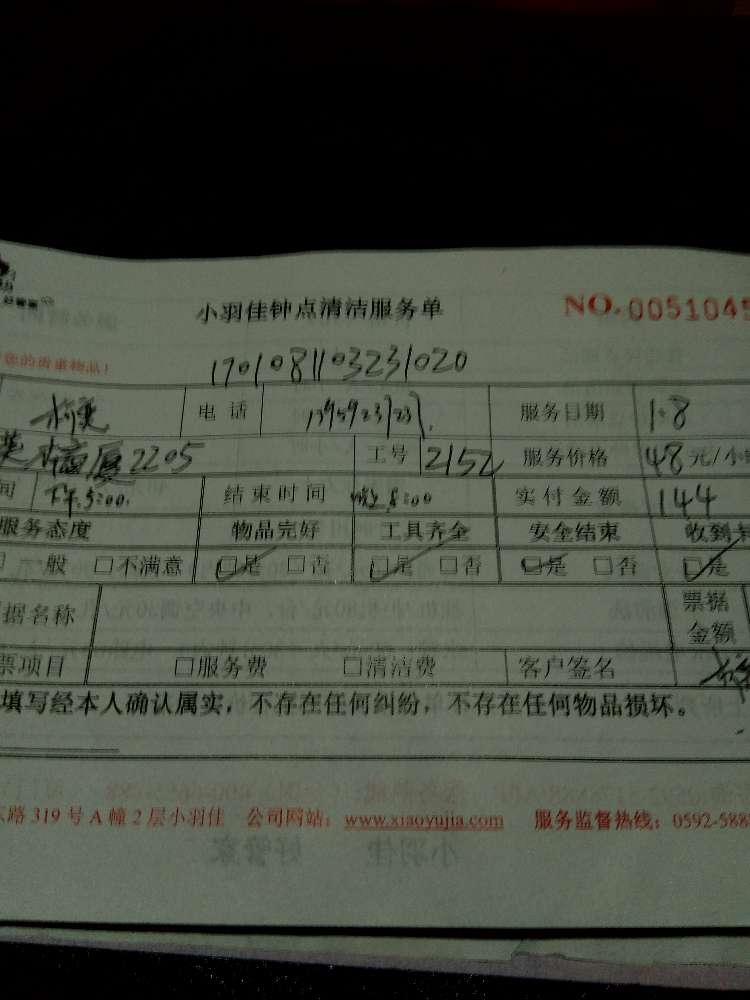 小羽佳钟点清洁服务单 NO.005104
您的贵重物品!
1701081103231020
电话 服务日期 1.8
厦2205 工号 2152 服务价格 48元/小
间 下午5:00 结束时间 晚上8:00 实付金额 144
服务态度 物品完好 工具齐全 安全结束 收到
般 □不满意 □是 □否 □是 □否 □是 □否 □是
据名称 票据金额
票项目 □服务费 □清洁费 客户签名
填写经本人确认属实，不存在任何纠纷，不存在任何物品损坏。
路319号A幢2层小羽佳 公司网站：www.xiaoyujia.com 服务监督热线：0592-588
小羽佳 好管家